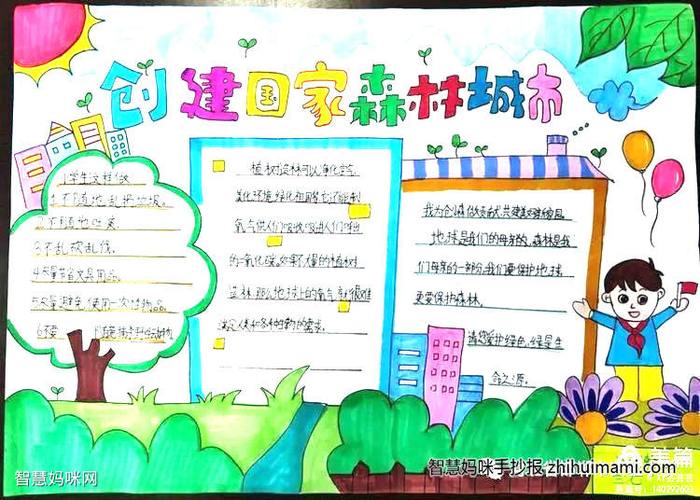 创建国家森林城市
小学生这样做
1.不随地乱扔垃圾。
2.不随地吐痰
3.不乱砍乱伐。
4.尽量节省文具用品。
5.尽量避免使用一次性物品
6.不要
植树造林可以净化空气
美化环境,绿化祖国,它还能制
氧气供人们吸收,吸进人们呼出
的二氧化碳。如果不大量的植树
造林,那么地球上的氧气 很难
满足人类和各种生物的需求。
我为创森做贡献,共建美好家园。
地球是我们的母亲,森林是我
们母亲的一部份,我们要保护地球
更要保护森林。
请您爱护绿色,绿是生
命之源。
智慧妈咪网
智慧妈咪手抄报 zhihuimami.com
美篇